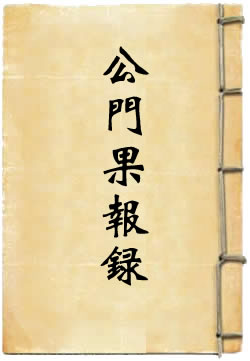 公門果報録